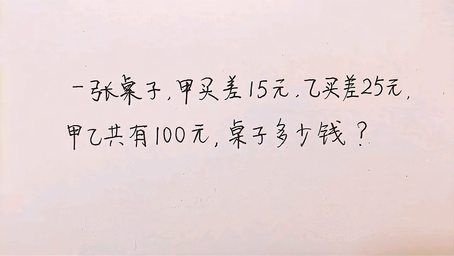 一张桌子,甲买差15元.乙买差25元,
甲乙共有100元,桌子多少钱?